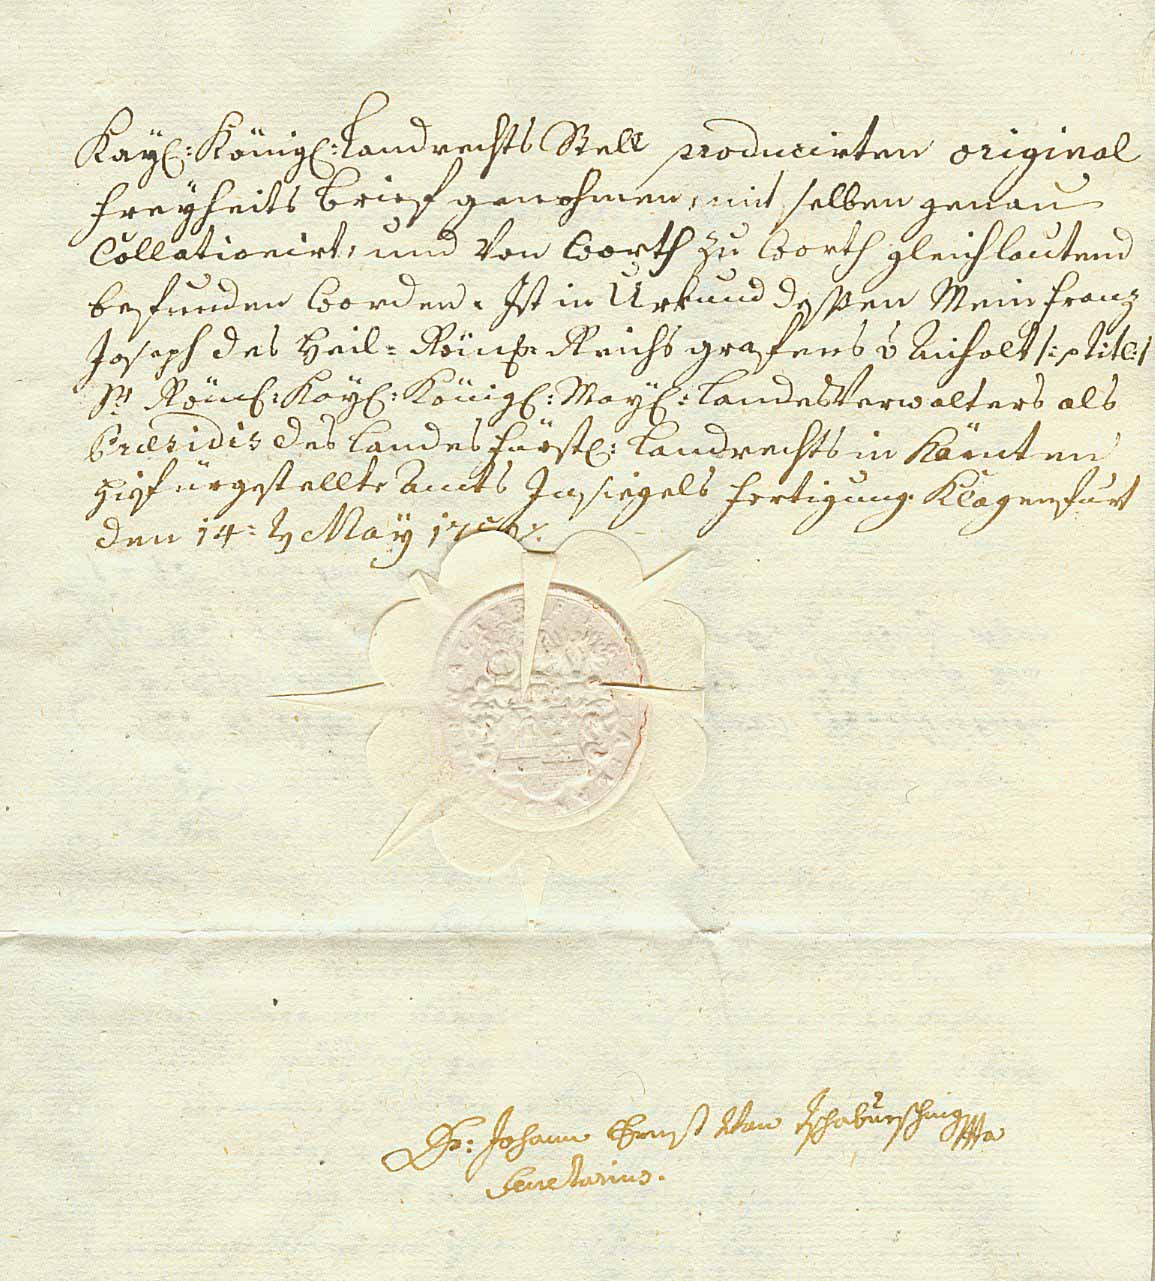 Kayl: Königl: Landrechts Stell producirten original
Freyheits Brief genohmen, mit selben genau
Collationirt, und von Worth zu Worth gleichlautend
befunden worden. Ist in Urkund dessen Mein Franz
Joseph des Heil: Röm: Reichs grafens v
Sr Röml: Kayl: Königl: Mayl: Landes Verwalters als
Præsidis des Landesfürstl: Landrechts in Kärnten
hiefürgestellte Amts Insiegels Fertigung. Klagenfurt
den 14: May
Johann Ernst Von
Secretarius.